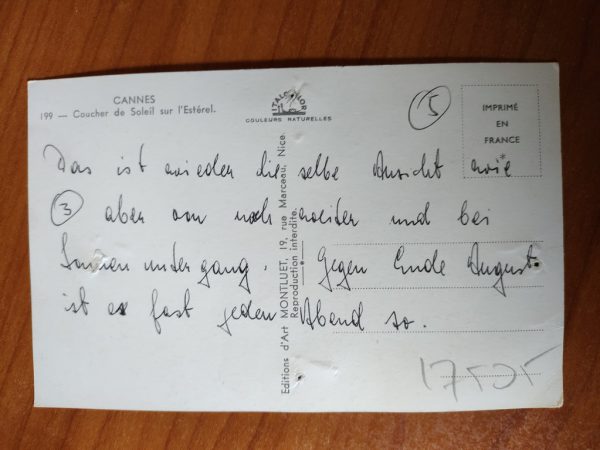 CANNES
199 — Coucher de Soleil sur l'Estérel.
ITALCOLOR
COULEURS NATURELLES
5
IMPRIMÉ
EN
FRANCE
Das ist wieder die selbe Ansicht wie
3 aber von noch weiter und bei
Sonnenundergang. Gegen Ende August
ist es fast jeden Abend so.
Editions d'Art MONTLUET, 19, rue Marceau, Nice.
Reproduction interdite.